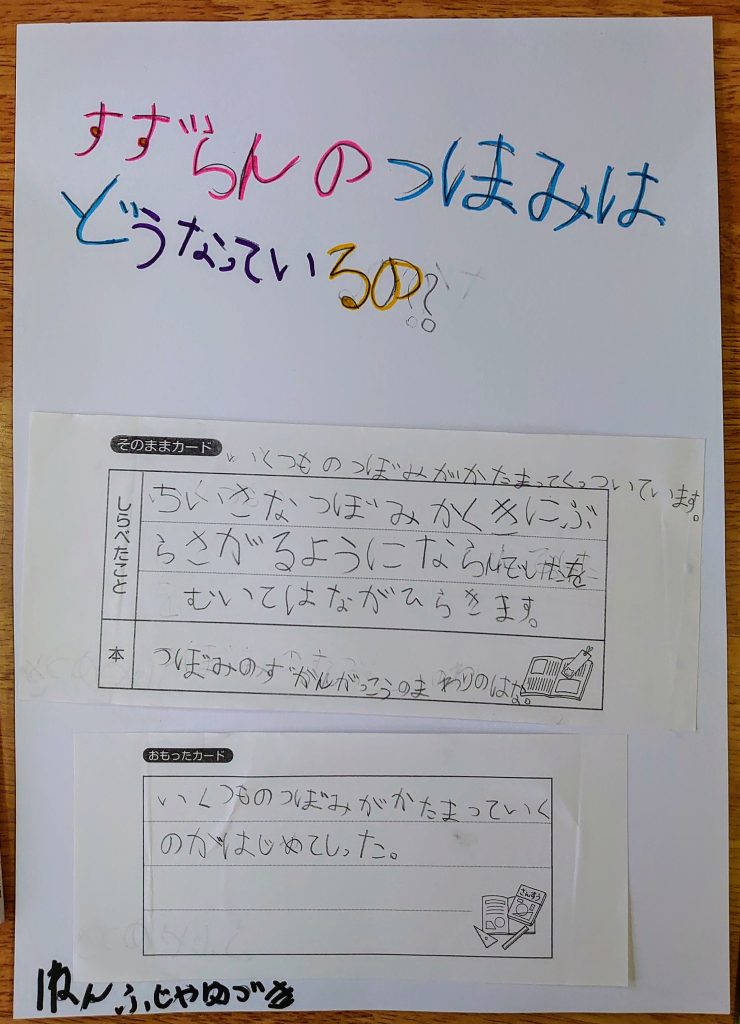 すずらんのつぼみは
どうなっているの?
そのままカード
いくつものつぼみがかたまってくっついています。
しらべたこと
ちいさなつぼみがくきにぶ
らさがるようにならんでしたを
むいてはながひらきます。
本
つぼみのずかんがっこうのまわりのはな。
おもったカード
いくつものつぼみがかたまっていく
のがはじめてしった。
さんすう
1ねんふじやゆづき